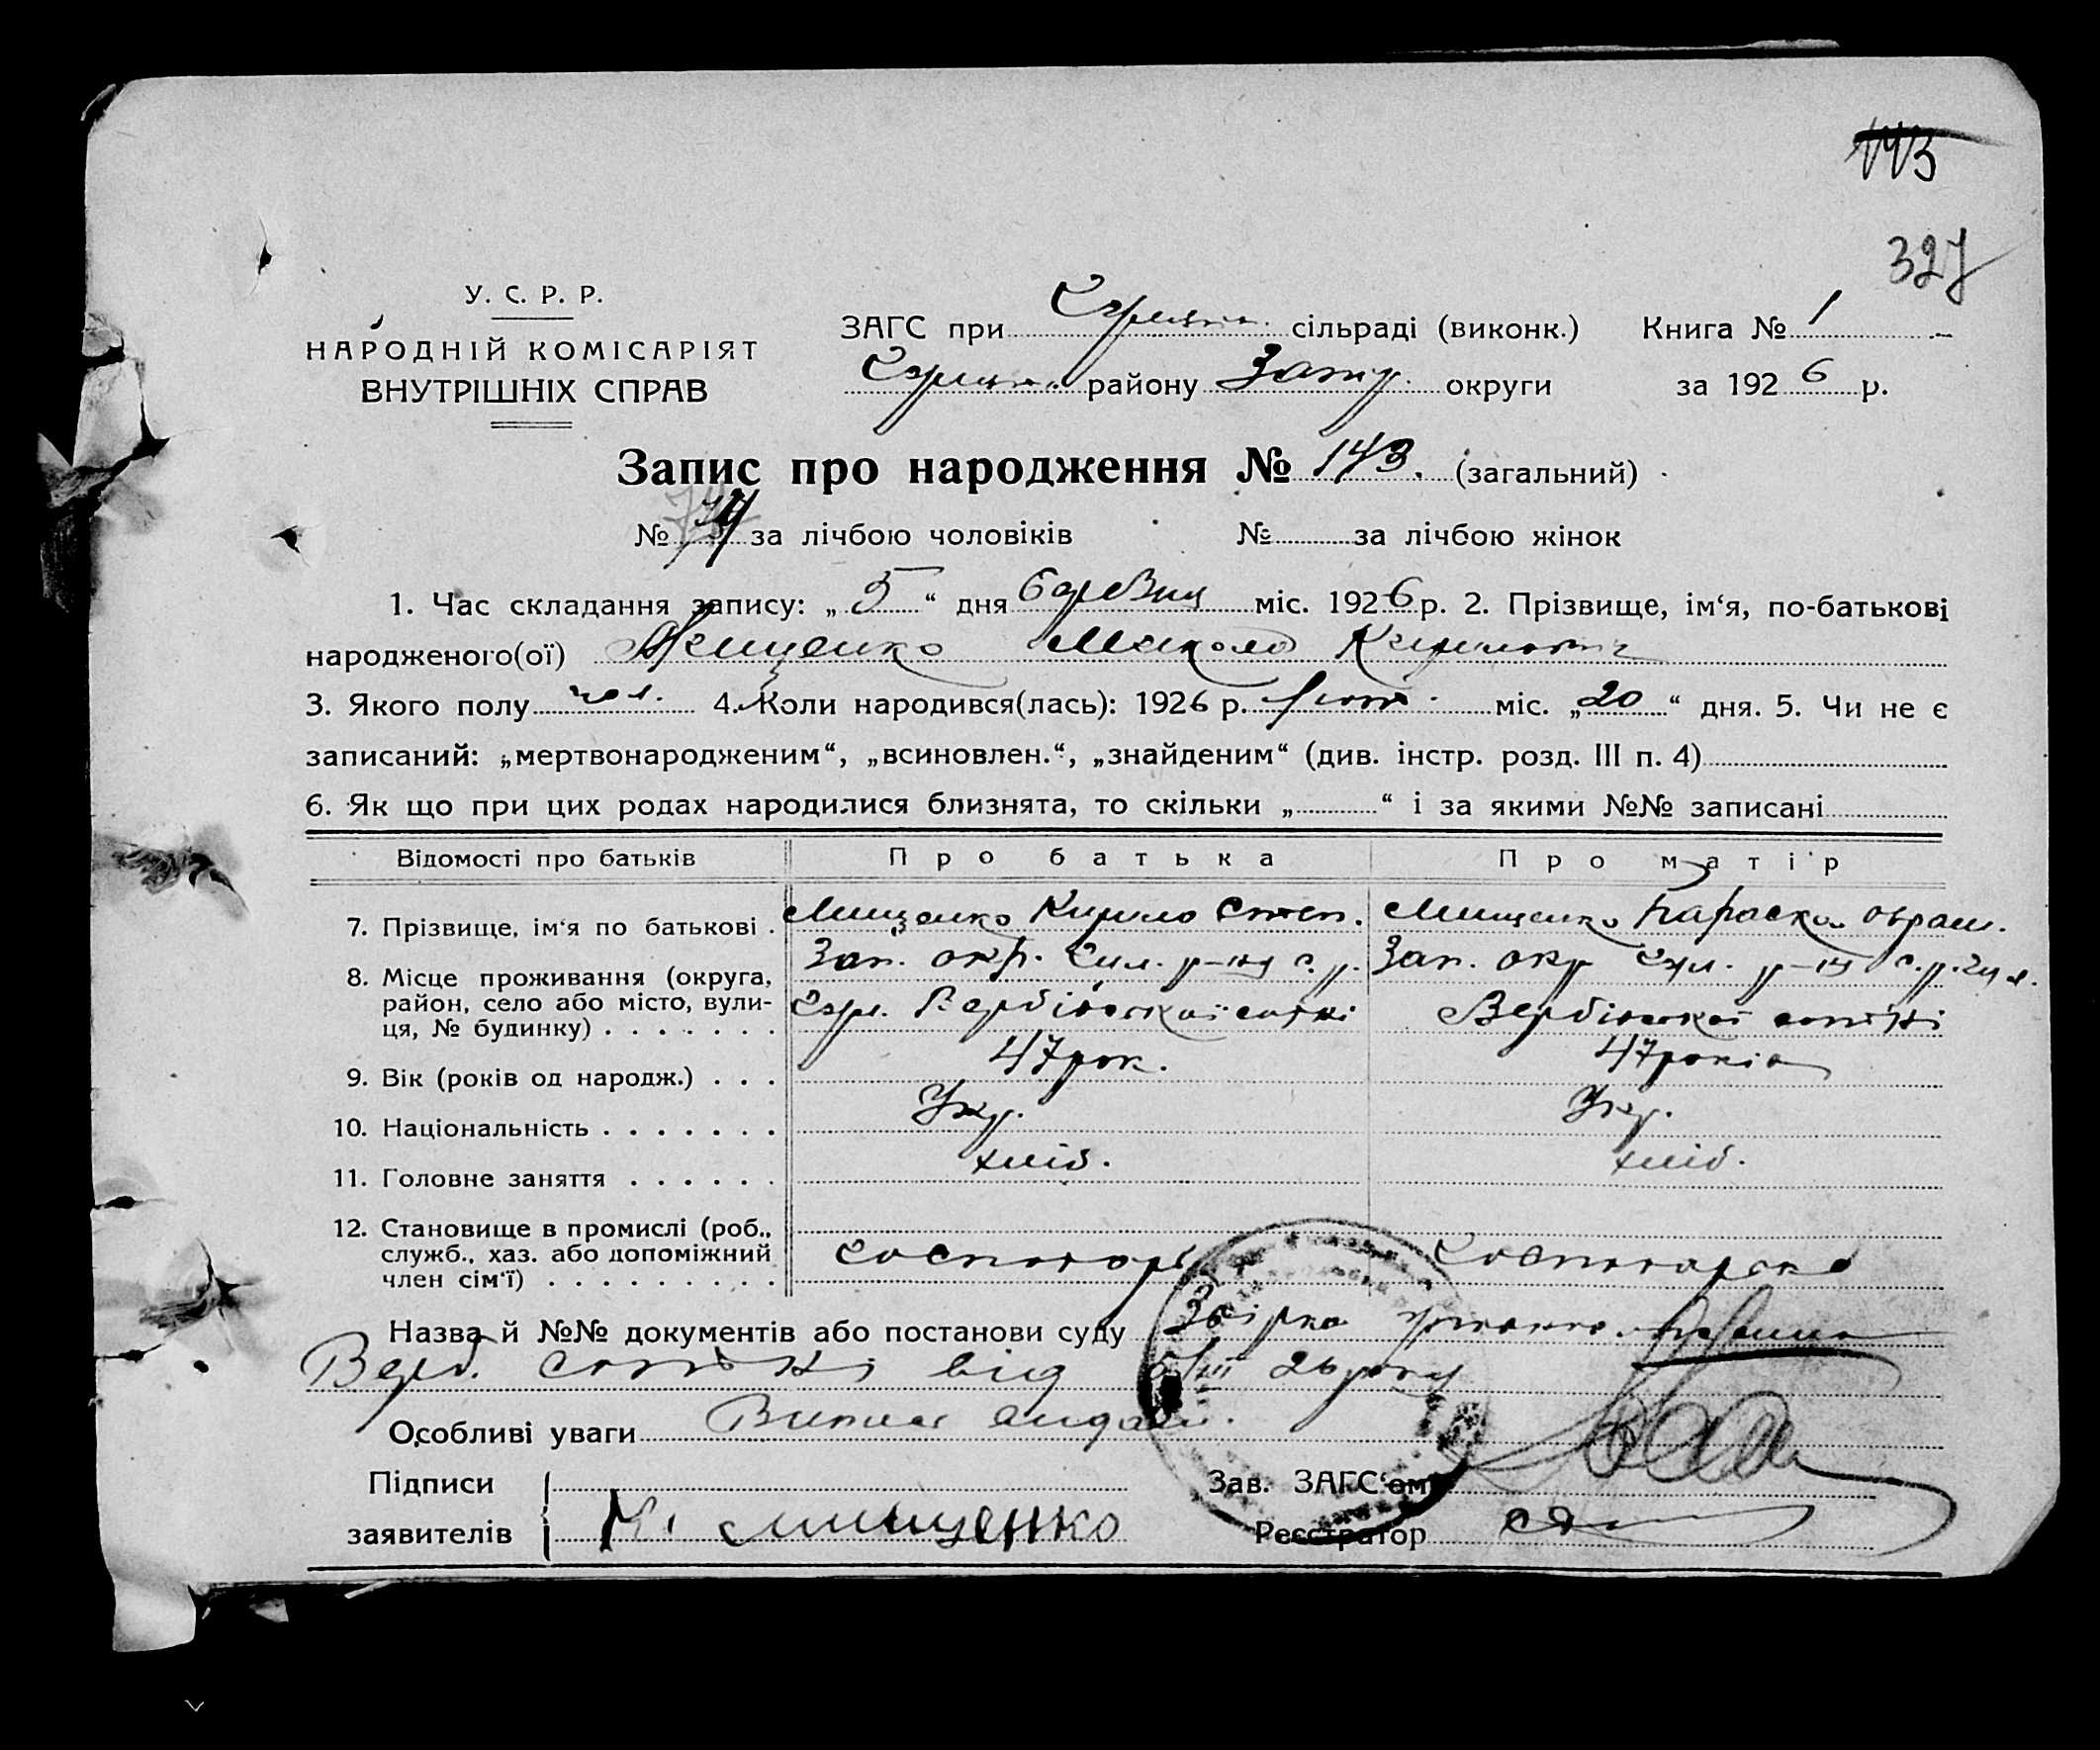 143
327
У. С. Р. Р.
НАРОДНІЙ КОМІСАРІЯТ
ВНУТРІШНІХ СПРАВ
ЗАГС при сільраді (виконк.) Книга № 1
району Запор. округи за 1926 р.
Запис про народження № 143. (загальний)
№ 74 за лічбою чоловіків № за лічбою жінок
1. Час складання запису: „5“ дня березня міс. 1926 р. 2. Прізвище, ім‘я, по-батькові
народженого(ої) Мищенко Микола Кирилович
3. Якого полу чол. 4. Коли народився(лась): 1926 р. лют. міс. „20“ дня. 5. Чи не є
записаний: „мертвонародженим“, „всиновлен.“, „знайденим“ (див. інстр. розд. III п. 4)
6. Як що при цих родах народилися близнята, то скільки „ “ і за якими №№ записані
Відомості про батьків Про батька Про матір
7. Прізвище, ім‘я по батькові . Мищенко Кирило Степ. Мищенко Параска Оврам.
8. Місце проживання (округа, Зап. окр. р-ну с. р. Зап. окр р-ну с. р.
район, село або місто, вули- Вербівської сотні Вербівської сотні
ця, № будинку) . . . . . . .
9. Вік (років од народж.) . . . 47 рок. 47 років
10. Національність . . . . . . . Укр. Укр.
11. Головне заняття . . . . . . хліб. хліб.
12. Становище в промислі (роб.,
служб., хаз. або допоміжний господарь господарка
член сім‘ї) . . . . . . . . .
Назва й №№ документів або постанови суду
Верб. сотні від 5/III 26 року
Особливі уваги Випис видан.
Підписи Зав. ЗАГС‘ом
заявителів К. Мищенко Реєстратор